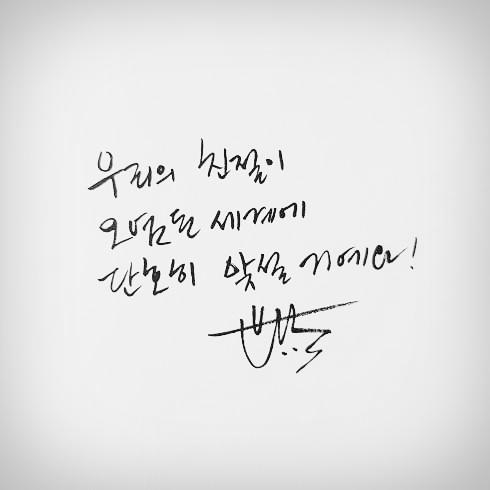 우리의 친절이
오염된 세계에
단호히 맞설 거예요!